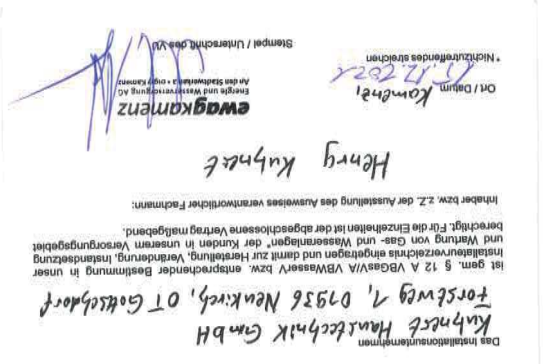 Das Installationsunternehmen
Kuhnert Haustechnik GmbH
Forstweg 1, 01936 Neukirch, OT Gottschdorf
ist gem. § 12 A VBGasV/A VBWasserV bzw. entsprechender Bestimmung in unser
Installateurverzeichnis eingetragen und damit zur Herstellung, Veränderung, Instandsetzung
und Wartung von Gas- und Wasseranlagen* der Kunden in unserem Versorgungsgebiet
berechtigt. Für die Einzelheiten ist der abgeschlossene Vertrag maßgebend.
Inhaber bzw. z.Z. der Ausstellung des Ausweises verantwortlicher Fachmann:
Henry Kuhnert
ewagkamenz
Energie und Wasserversorgung AG
An den Stadtwerken 2 • 01917 Kamenz
Ort / Datum Kamenz, 15.12.2021
*Nichtzutreffendes streichen
Stempel / Unterschrift des VU